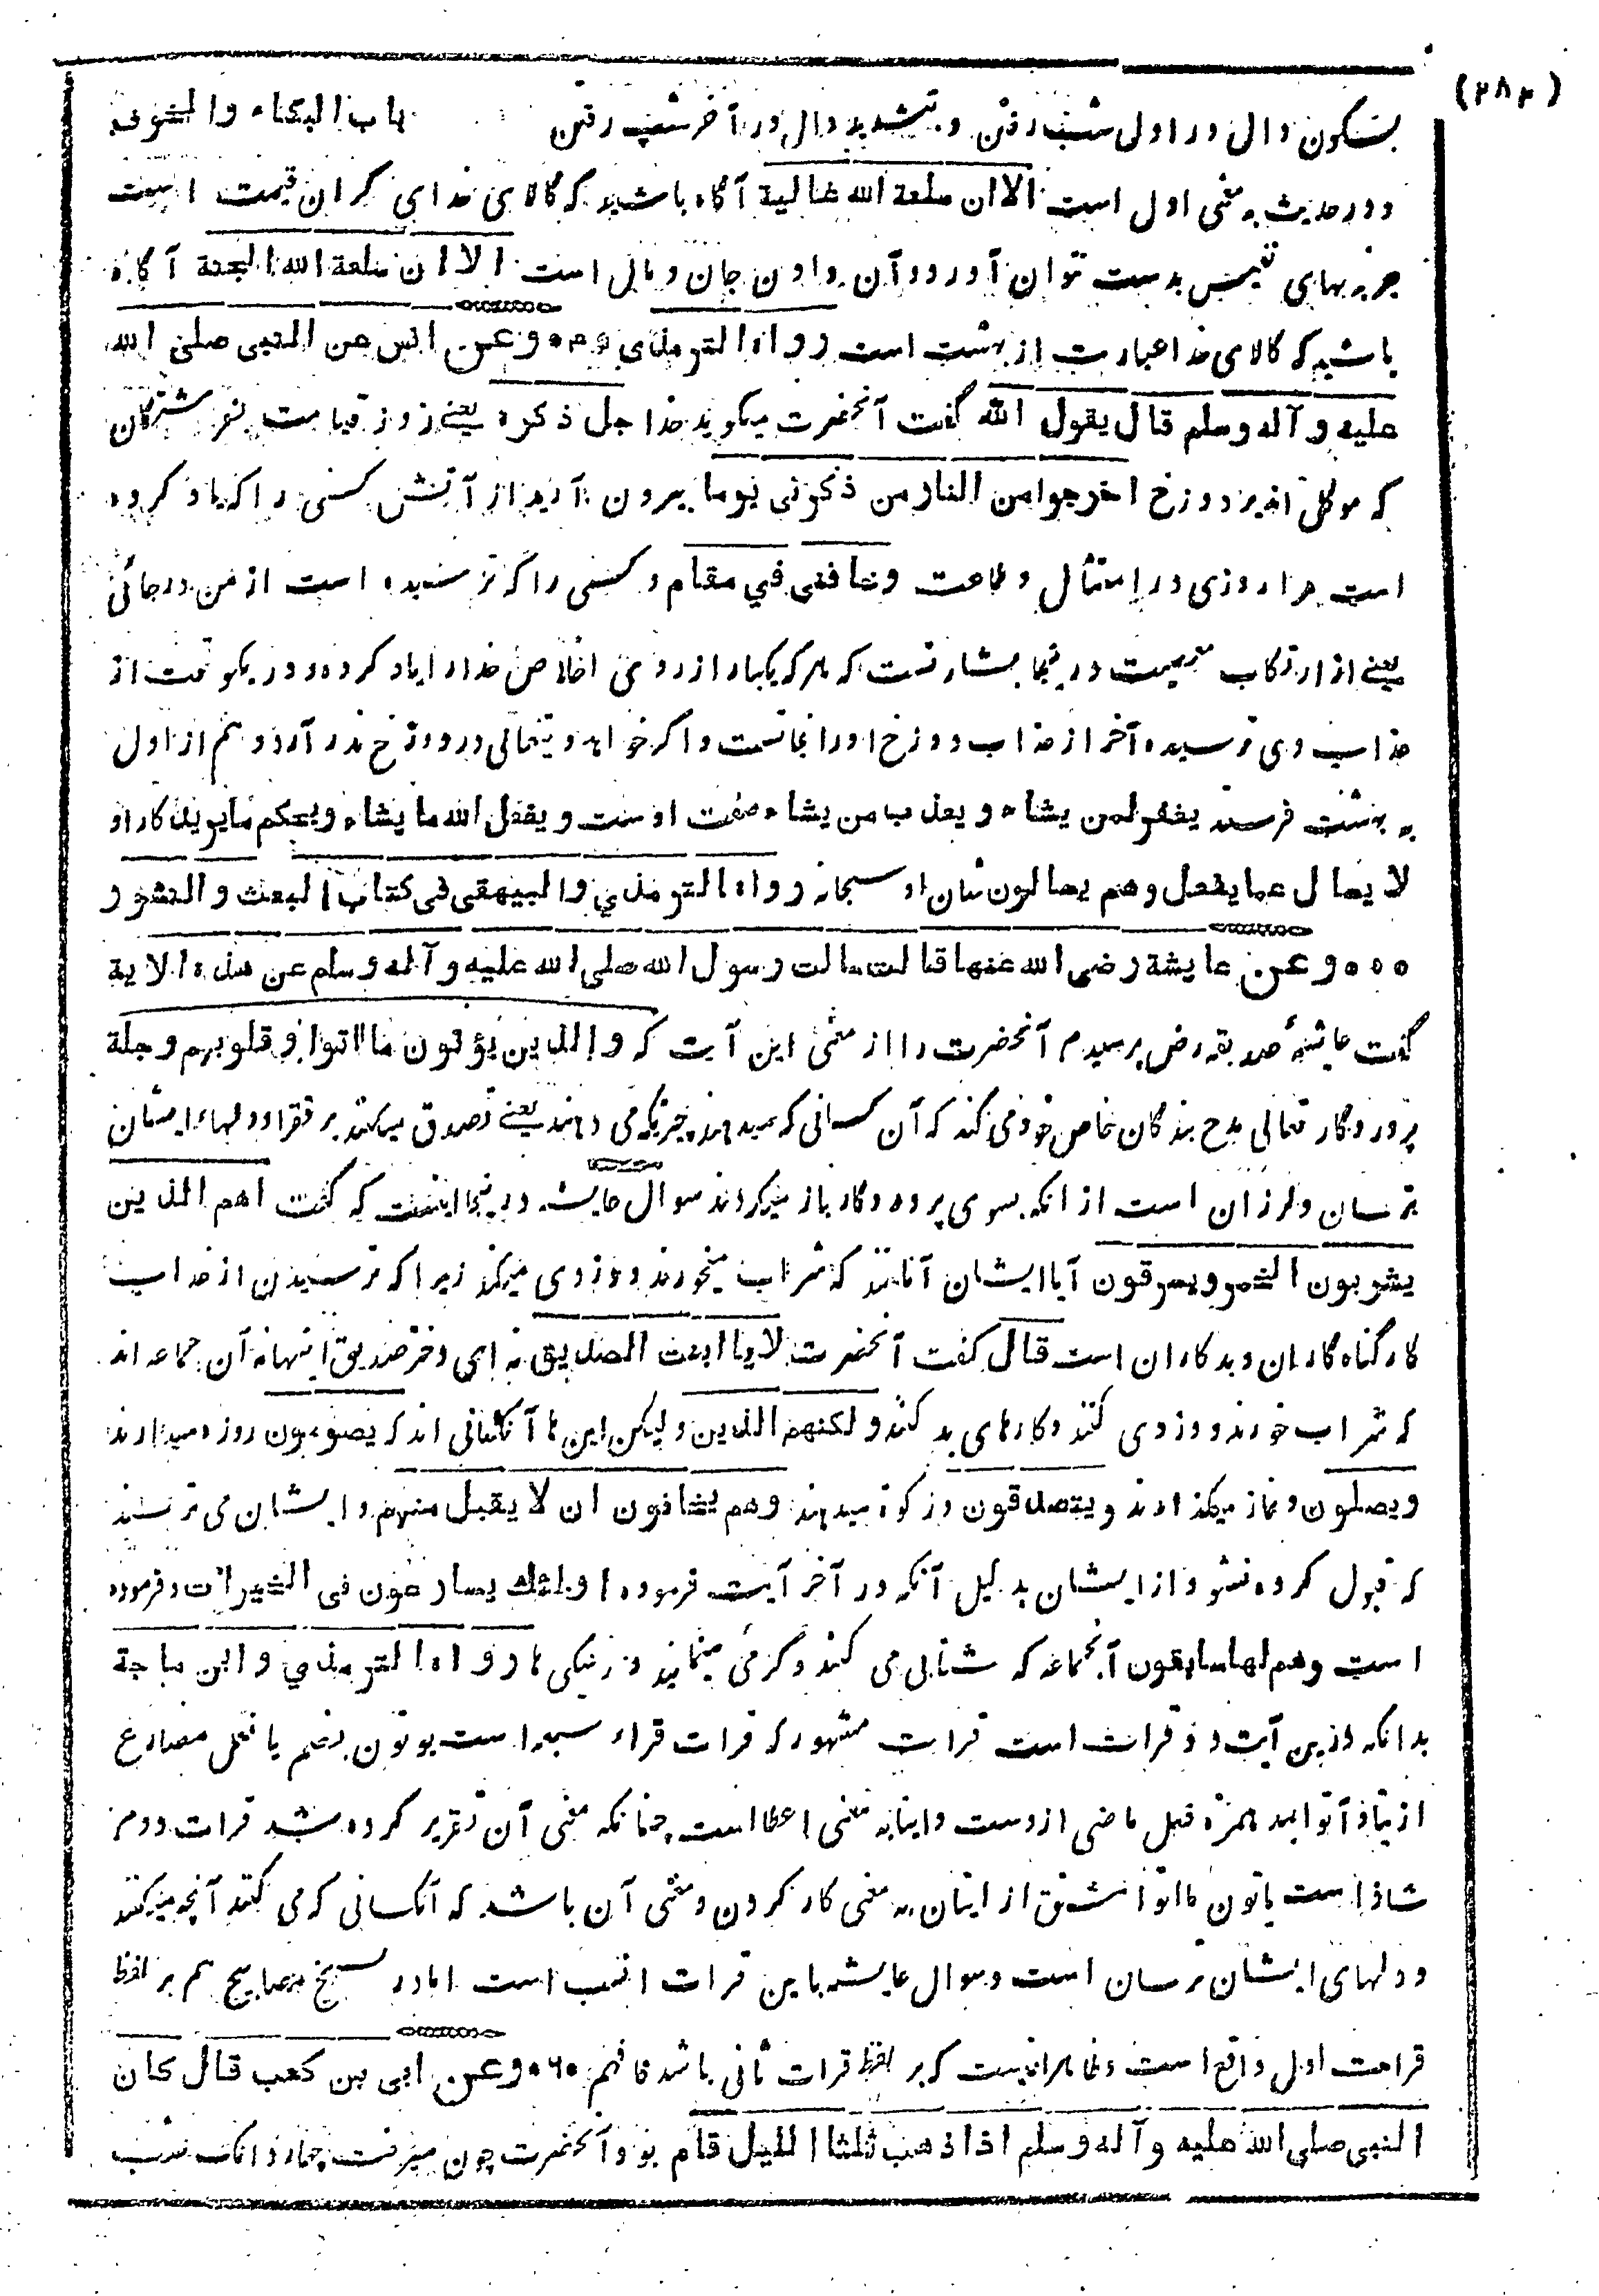 (٢٨٢)
باب البكاء والخوف
بسكون دال در اول شب رفتن و بتشديد دال در آخر شب رفتن
و در حديث بمعنى اول است الا ان سلعة الله غالية آگاه باشيد كه كالاى خداى گران قيمت است
جز به بهاى نفيس بدست نتوان آورد و آن دادن جان و مال است الا ان سلعة الله الجنة آگاه
باشيد كه كالاى خدا عبارت از بهشت است رواه الترمذي وعن انس عن النبى صلى الله
عليه و آله وسلم قال يقول الله گفت آنحضرت ميگويد خدا جل ذكره يعنے روز قيامت بفرشتگان
كه موكل اند بر دوزخ اخرجوا من النار من ذكرنى يوما بيرون آريد از آتش كسى را كه ياد كرده
است مرا روزى در امتثال و طاعت وخافنى في مقام و كسى را كه ترسيده است از من در جائى
يعنے از ارتكاب معصيت درينجا بشارتست كه هر كه يكبار از روى اخلاص خدا را ياد كرده و در يكوقت از
عذاب وى ترسيده آخر از عذاب دوزخ او را نجاتست و اگر خواهد و يتعالى در دوزخ در نيارد و هم از اول
به بهشت فرستد يغفر لمن يشاء و يعذب من يشاء صفت اوست و يفعل الله ما يشاء ويحكم ما يريد كار او
لا يسال عما يفعل وهم يسالون شان او سبحانه رواه الترمذي والبيهقى فى كتاب البعث والنشور
٥٥٥ وعن عايشة رضى الله عنها قالت سالت رسول الله صلى الله عليه و آله وسلم عن هذه الاية
گفت عايشهٔ صديقه رض پرسيدم آنحضرت را از معنى اين آيت كه والذين يؤتون ما اتوا وقلوبهم وجلة
پروردگار تعالى مدح بندگان خاص خود مى كند كه آن كسانى كه ميدهند چيزيكه مى دهند يعنے تصدق ميكنند بر فقرا و دلهاء ايشان
ترسان و لرزان است از انكه بسوى پروردگار باز ميگردند سوال عايشه درينجا اينست كه گفت اهم الذين
يشربون الخمر ويسرقون آيا ايشان آنانند كه شراب ميخورند و دزدى ميكنند زيرا كه ترسيدن از عذاب
كار گناه گاران و بدكاران است قال گفت آنحضرت لا يا ابنت الصديق نه اى دختر صديق اينها نه آن جماعه اند
كه شراب خورند و دزدى كنند و كارهاى بد كنند ولكنهم الذين وليكن اين ها آنكسانى اند كه يصومون روزه ميدارند
ويصلون و نماز ميگذارند ويتصدقون و زكوة ميدهند وهم يخافون ان لا يقبل منهم و ايشان مى ترسند
كه قبول كرده نشود از ايشان بدليل آنكه در آخر آيت فرموده اولئك يسارعون فى الخيرات و فرموده
است وهم لها سابقون آنجماعه كه شتابى مى كنند و گرمى مينمايند در نيكى ها رواه الترمذي وابن ماجة
بدانكه درين آيت دو قرات است قرات مشهور كه قرات قراء سبعه است يوتون بضم يا فعل مضارع
از ايتا و آتوا بمد همزه فعل ماضى ازوست و ايتا به معنى اعطا است چنانكه معنى آن تقرير كرده شد قرات دوم
شاذ است ياتون ما اتوا مشتق از اتيان به معنى كار كردن و معنى آن باشد كه آنكسانى كه مى كنند آنچه ميكنند
و دلهاى ايشان ترسان است و سوال عايشه باين قرات انسب است اما در نسخ مصابيح هم بر لفظ
قراءت اول واقع است و ظاهر آنست كه بر لفظ قرات ثانى باشد فافهم ٥٦ وعن ابى بن كعب قال كان
النبى صلى الله عليه و آله وسلم اذا ذهب ثلثا الليل قام بود آنحضرت چون ميرفت چهار دانگ شب